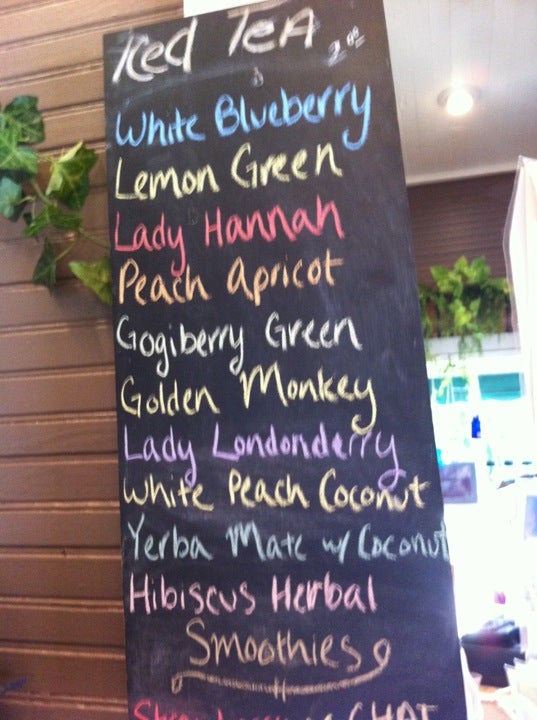 Iced Tea
White Blueberry
Lemon Green
Lady Hannah
Peach Apricot
Gogiberry Green
Golden Monkey
Lady Londonderry
White Peach Coconut
Yerba Mate w/ Coconut
Hibiscus Herbal
Smoothies